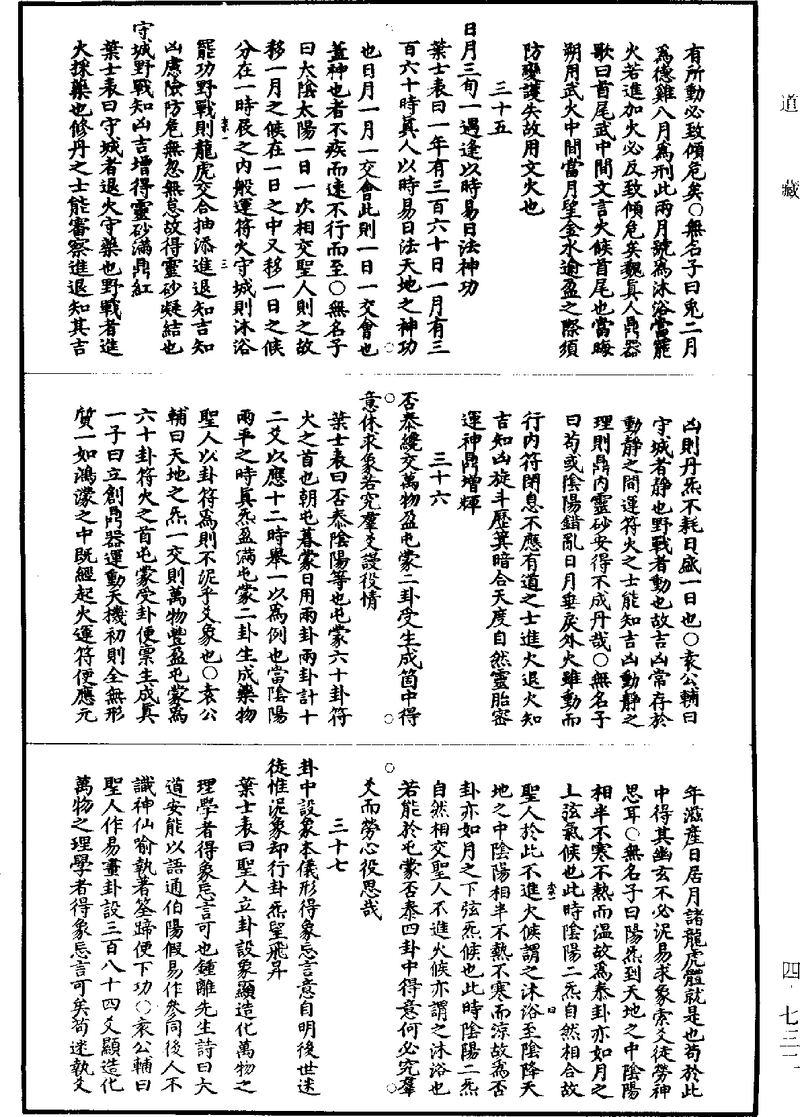 道藏
有所動必致傾危矣○無名子曰兎二月
爲德雞八月爲刑此兩月號爲沐浴當罷
火若進加火必反致傾危矣魏真人鼎器
歌曰首尾武中間文言火候首尾也當晦
朔用武火中間當月望金水逾盈之際須
防變護失故用文火也
三十五
日月三旬一遇逢以時易日法神功
葉士表曰一年有三百六十日一月有三
百六十時真人以時易日法天地之神功
也日月一月一交會此則一日一交會也
蓋神也者不疾而速不行而至○無名子
曰太陰太陽一日一次相交聖人則之故
移一月之候在一日之中又移一日之候
分在一時辰之内般運符火守城則沐浴
罷功野戰則龍虎交合抽添進退知吉知
凶慮險防危無忽無怠故得靈砂凝結也
守城野戰知凶吉增得靈砂滿鼎紅
葉士表曰守城者退火守藥也野戰者進
火採藥也修丹之士能審察進退知其吉
凶則丹炁不耗日盛一日也○袁公輔曰
守城者靜也野戰者動也故吉凶常存於
動靜之間運符火之士能知吉凶動靜之
理則鼎内靈砂安得不成丹哉○無名子
曰苟或陰陽錯亂日月乖戾外火雖動而
行内符閉息不應有道之士進火退火知
吉知凶旋斗歷箕暗合天度自然靈胎密
運神鼎增輝
三十六
否泰纔交萬物盈屯蒙二卦受生成箇中得
意休求象若究羣爻謾役情
葉士表曰否泰陰陽等也屯蒙六十卦符
火之首也朝屯暮蒙日用兩卦兩卦計十
二爻以應十二時舉一以爲例也當陰陽
兩平之時真炁盈滿屯蒙二卦生成藥物
聖人以卦符爲則不泥乎爻象也○袁公
輔曰天地之炁一交則萬物豐盈屯蒙爲
六十卦符火之首屯蒙受卦便禀生成真
一子曰立創鼎器運動天機初則全無形
質一如鴻濛之中既經起火運符便應元
年滋產日居月諸龍虎體就是也苟於此
中得其幽玄不必泥易求象索爻徒勞神
思耳○無名子曰陽炁到天地之中陰陽
相半不寒不熱而溫故爲泰卦亦如月之
上弦氣候也此時陰陽二炁自然相合故
聖人於此不進火候謂之沐浴至陰降天
地之中陰陽相半不熱不寒而涼故爲否
卦亦如月之下弦炁候也此時陰陽二炁
自然相交聖人不進火候亦謂之沐浴也
若能於屯蒙否泰四卦中得意何必究羣
爻而勞心役思哉
三十七
卦中設象本儀形得象忘言意自明後世迷
徒惟泥象却行卦炁望飛昇
葉士表曰聖人立卦設象顯造化萬物之
理學者得象忘言可也鍾離先生詩曰大
道安能以語通伯陽假易作參同後人不
識神仙喻執著筌蹄便下功○袁公輔曰
聖人作易畫卦設三百八十四爻顯造化
萬物之理學者得象忘言可矣苟迷執爻
四·七三二